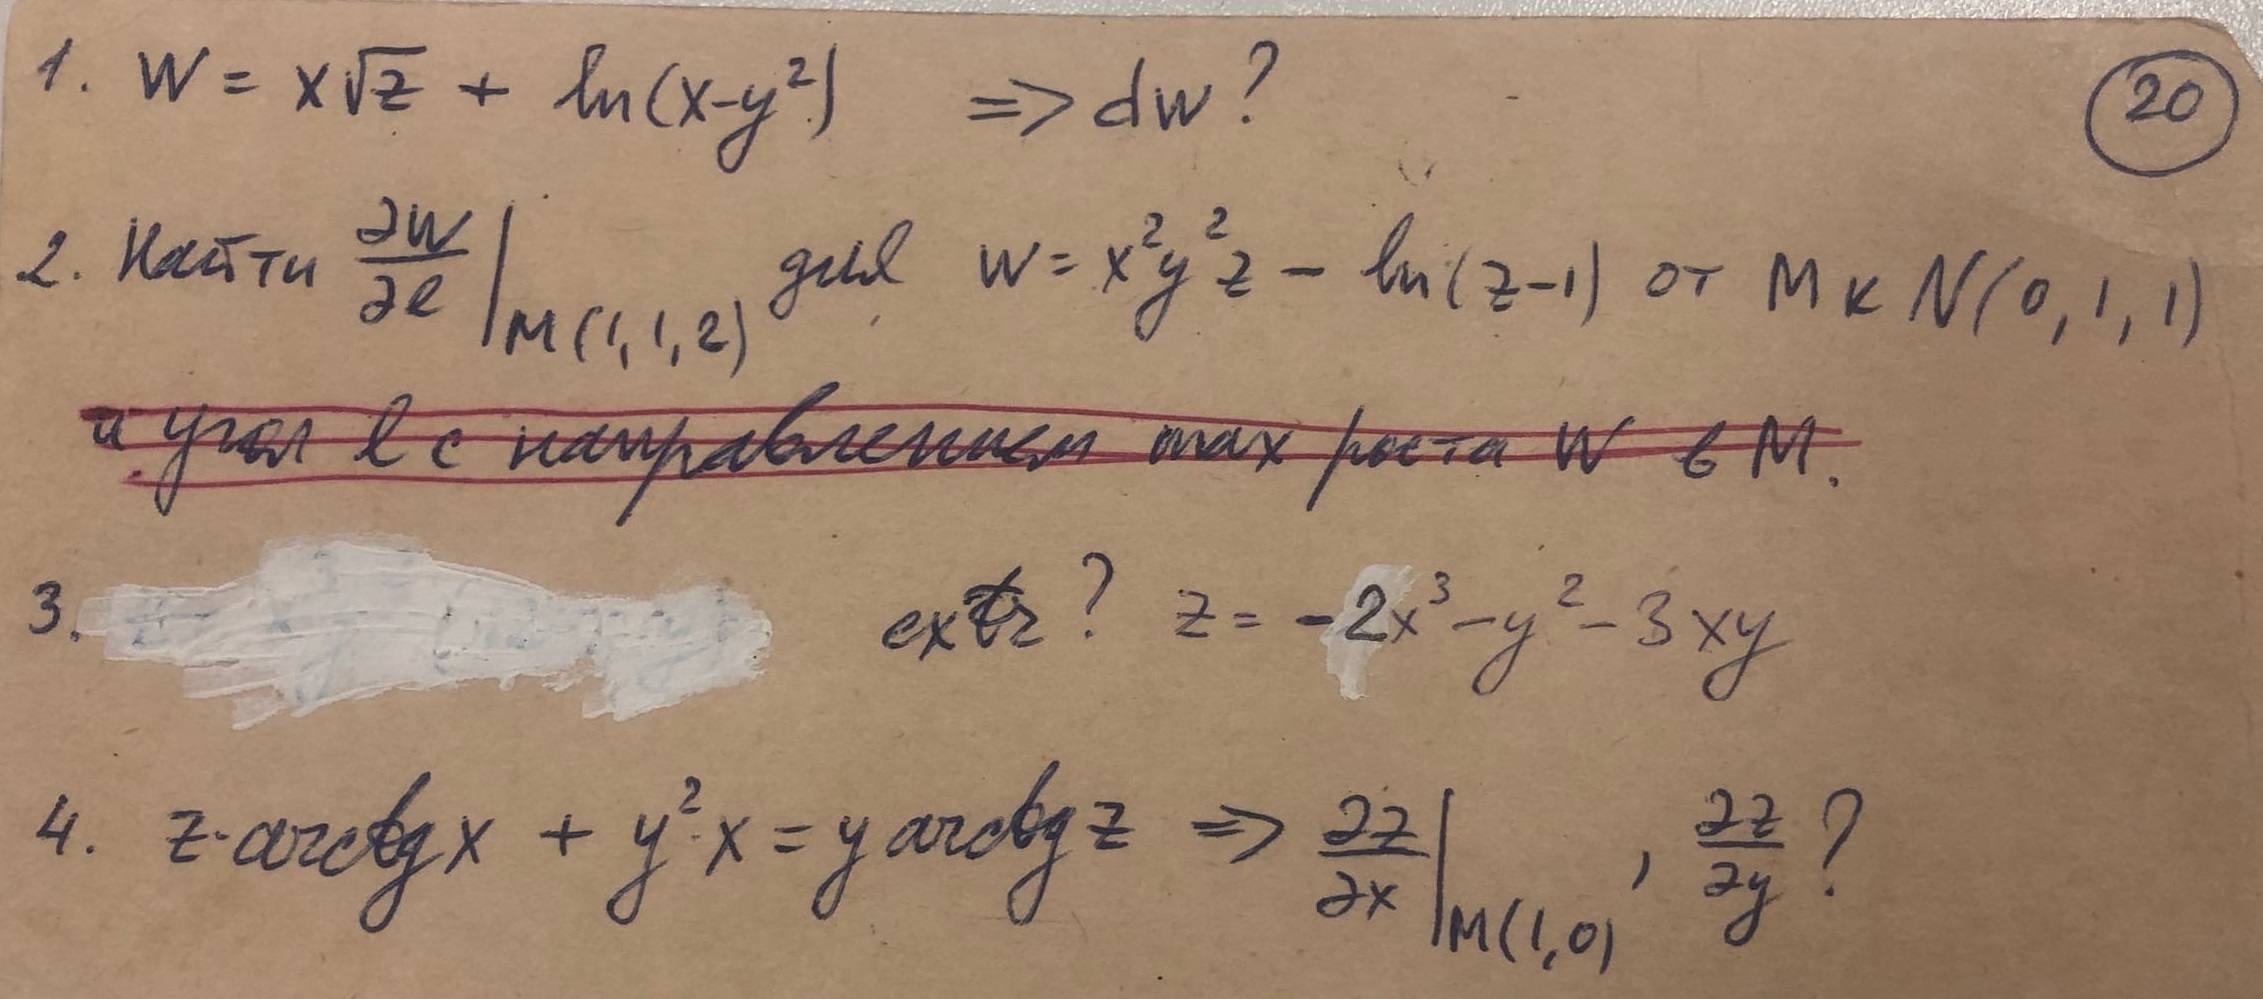 1. W = x√z + ln(x-y²) => dw? 20
2. Найти ∂w/∂l |M(1,1,2) для w = x²y²z - ln(z-1) от M к N(0,1,1)
и угол l с направлением max роста W в M.
3. extr? z = -2x³-y²-3xy
4. z·arctg x + y²·x = y arctg z => ∂z/∂x |M(1,0), ∂z/∂y?